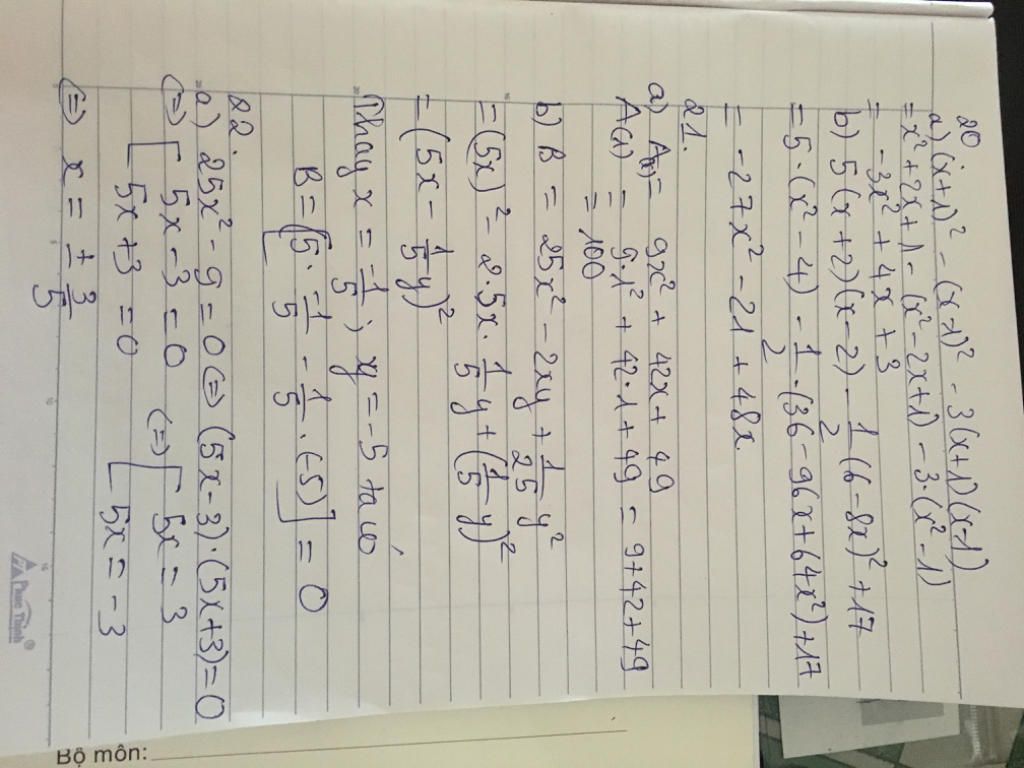 20
a) (x+1)² - (x-1)² - 3(x+1)(x-1)
= x² + 2x + 1 - (x² - 2x + 1) - 3·(x² - 1)
= -3x² + 4x + 3
b) 5(x+2)(x-2) - 1/2 (6-8x)² + 17
= 5·(x² - 4) - 1/2 ·(36 - 96x + 64x²) + 17
= -27x² - 21 + 48x.
21.
a) A(x) = 9x² + 42x + 49
A(1) = 9·1² + 42·1 + 49 = 9 + 42 + 49
= 100
b) B = 25x² - 2xy + 1/25 y²
= (5x)² - 2·5x·1/5 y + (1/5 y)²
= (5x - 1/5 y)²
Thay x = -1/5 ; y = -5 ta có
B = [5 · -1/5 - 1/5 · (-5)] = 0
22.
a) 25x² - 9 = 0 <=> (5x-3)·(5x+3) = 0
<=> [ 5x - 3 = 0 <=> [ 5x = 3
5x + 3 = 0 5x = -3
<=> x = ± 3/5
Phúc Thịnh®
Bộ môn: